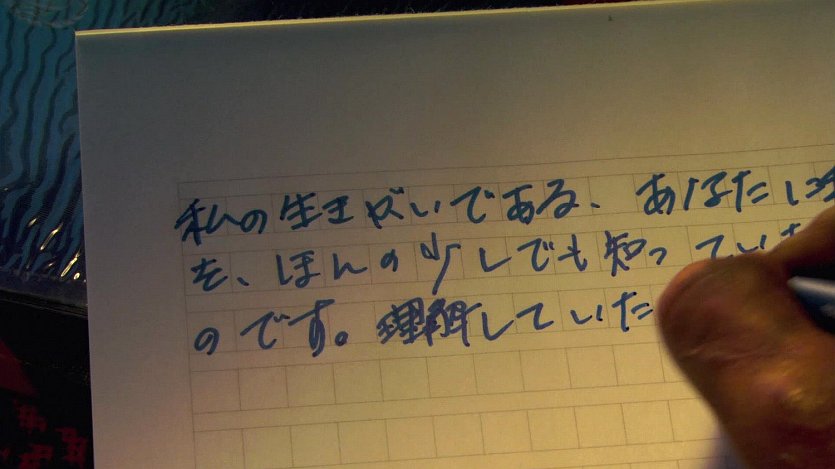 私の生きがいである、あなたに
を、ほんの少しでも知ってい
のです。理解していた